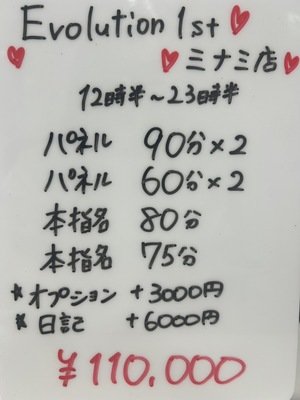 Evolution 1st
ミナミ店
12時半～23時半
パネル 90分×2
パネル 60分×2
本指名 80分
本指名 75分
*オプション +3000円
*日記 +6000円
¥110,000